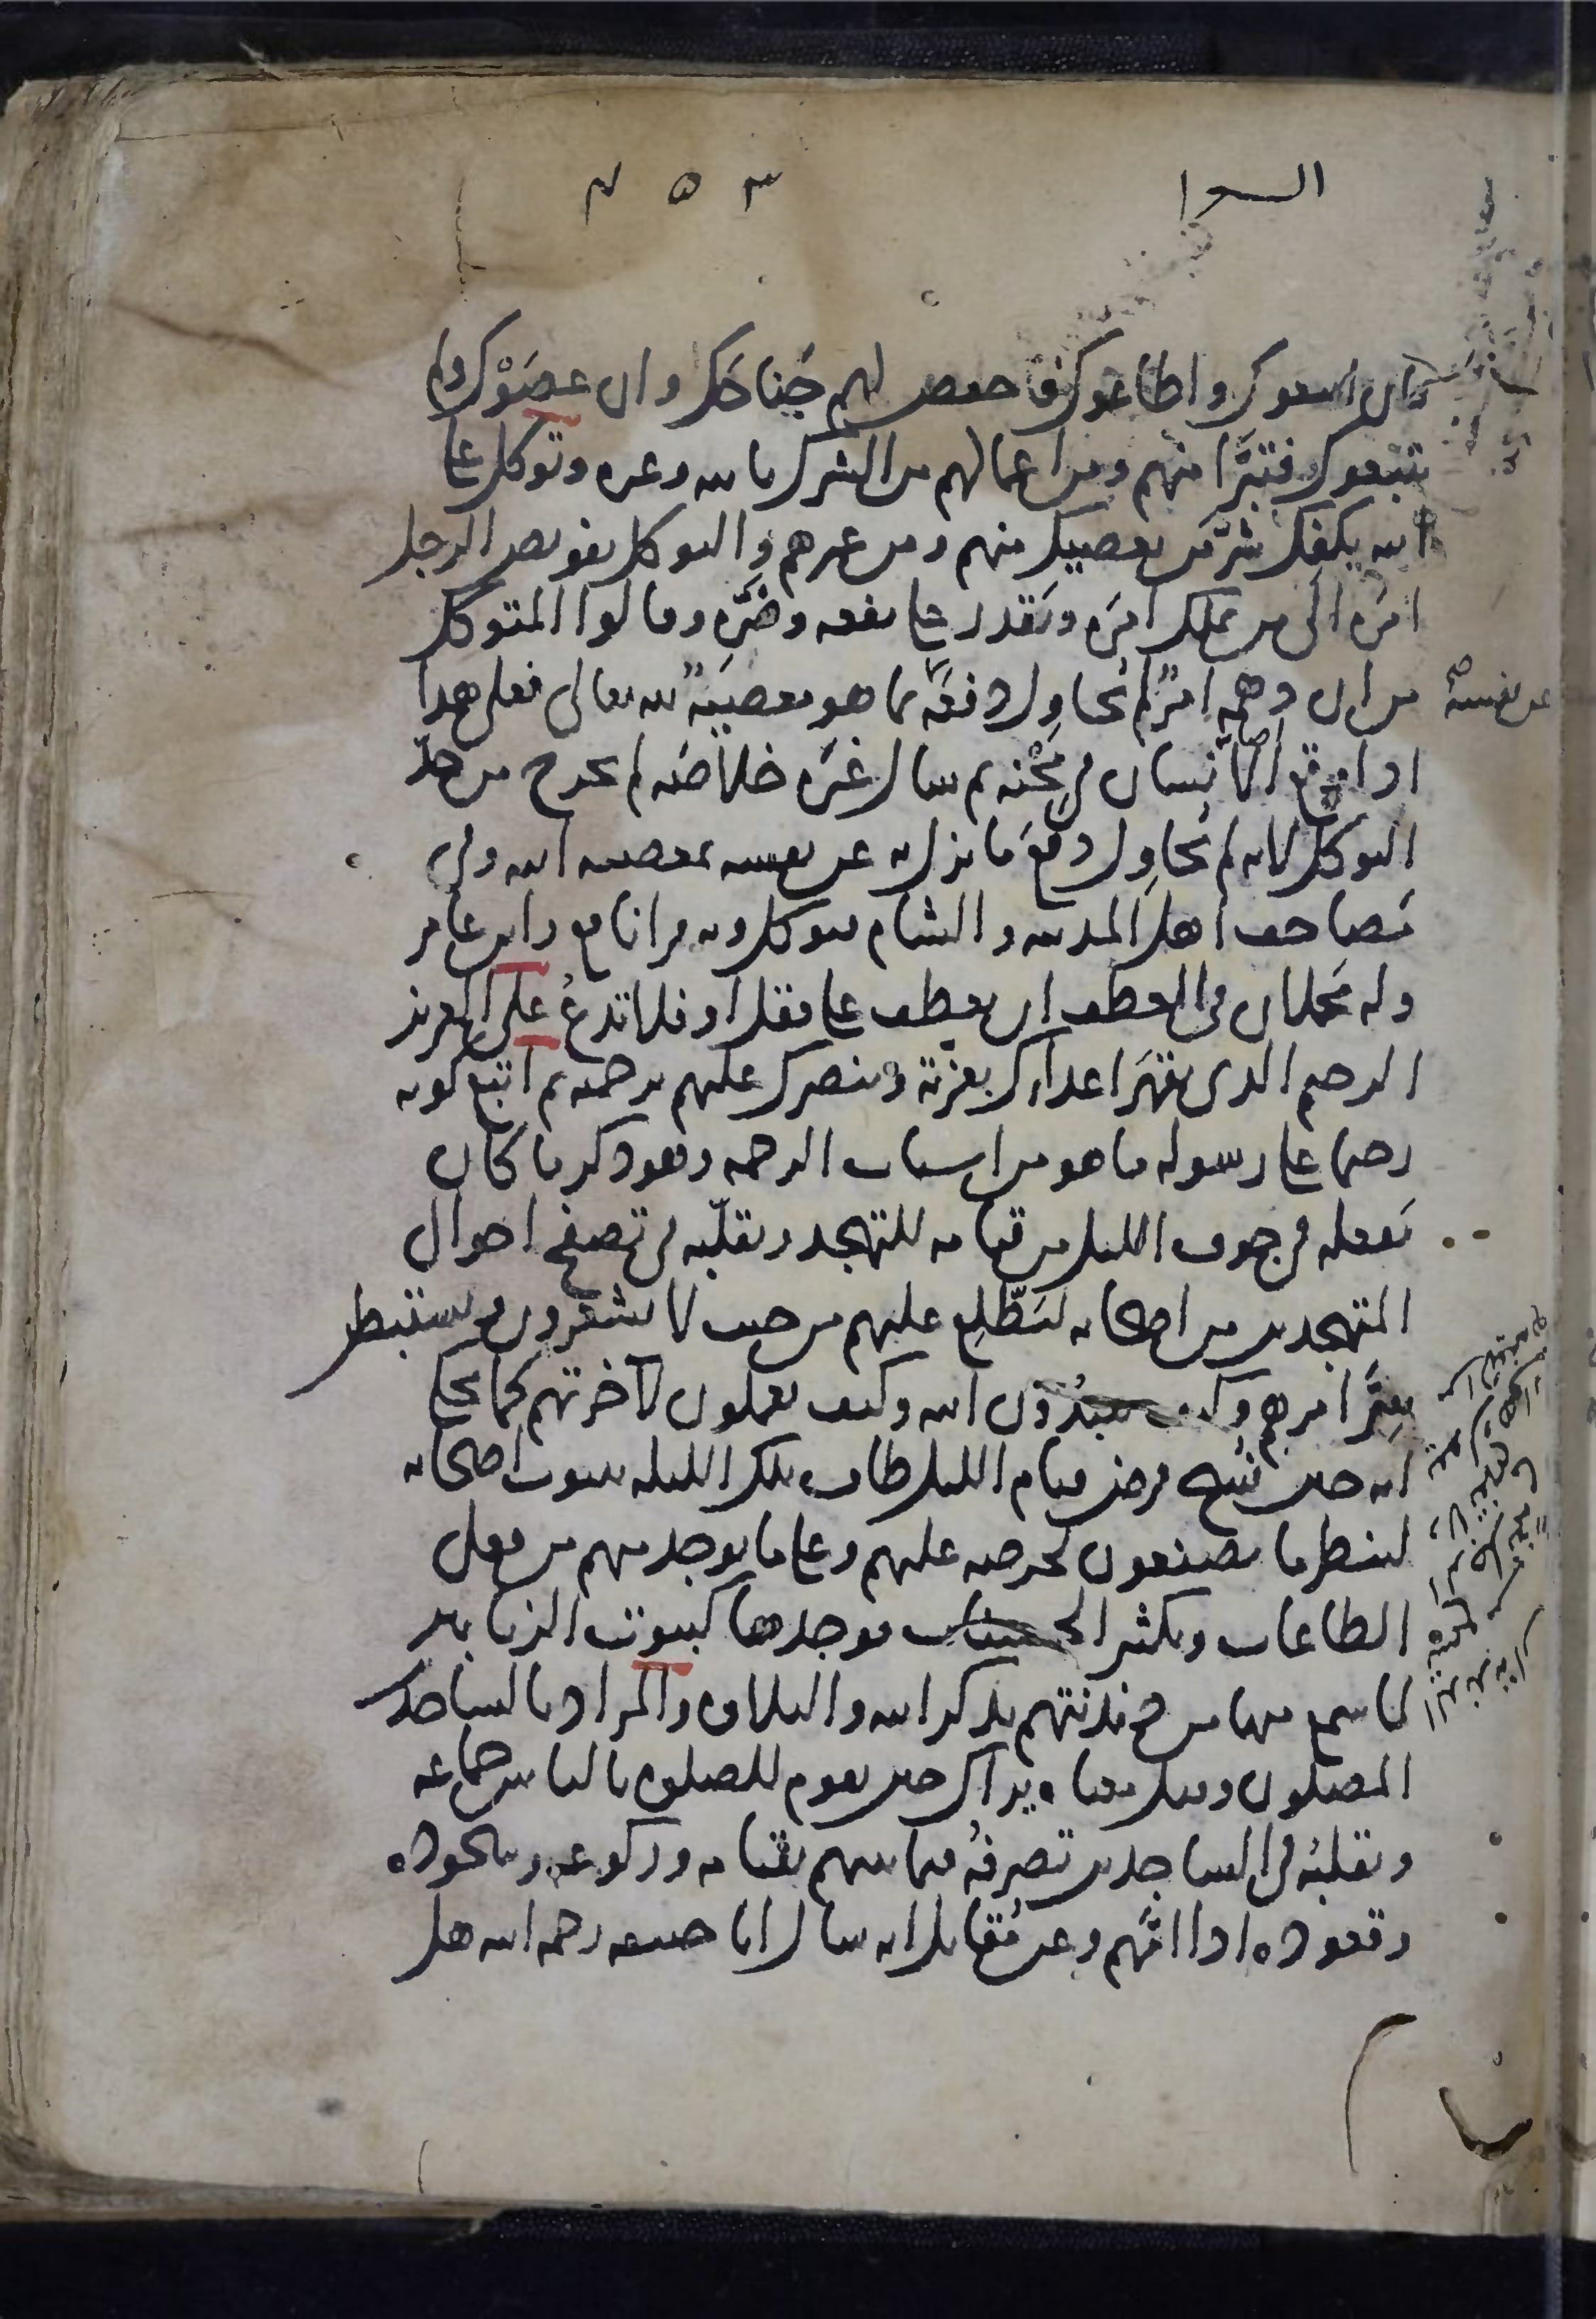 السعرا ٣٥٣
فان اتبعوك واطاعوك فاخفض لهم جَناحَك وان عصَوْك ولم
يتبعوك فتبرَّا منهم ومن اعمالهم من الشرك بالله وغيره وتوكل على
الله يكفك شرّ من يعصيك منهم ومن غيرهم والتوكل تفويض الرجل
امرَه الى من يملك امره ويَقدر على نفعه وضَرّه وقالوا المتوكل
من ان دهمه امرٌ لم يُحاوِل دفعَه عن نفسه بما هو معصيَة لله تعالى فعلى هذا
اذا وقع الانسان في مِحْنه ثم سال غيَره خلاصَه لم يخرج من حدّ
التوكل لانه لم يُحاوِل دفعَ ما نزل به عن نفسه بمعصيه الله وفي
مَصاحف اهل المدينه والشام فتوكل وبه قرا نافع وابن عامر
وله مَحملان في العطف ان يعطف على فقل او فلا تدعُ على العزيز
الرحيم الذي يقهَر اعداءك بعزّته وينصرك عليهم برحمته ثم اتبع كونه
رحيما على رسوله ما هو من اسباب الرحمه وهو ذكر ما كان
يَفعله في جوف الليل من قيامه للتهجد وتقلّبه في تصفح احوال
المتهجدين من اصحابه ليَطّلِع عليهم من حيث لا يشعرون ويستنبطن
سِرَّ امرهم وكيف يعبُدُون الله وكيف يعملون لآخرتهم كما يحكى
انه حين نُسخ فرض قيام الليل طاف تلك الليله ببيوت اصحابه
لينظر ما يصنعون لحرصه عليهم وعلى ما يوجد منهم من فعل
الطاعات وتكثير الحسنات فوجدها كبيوت الزنابير
لما سمع منها من دندنتهم بذكر الله والتلاوه والمراد بالساجدين
المصلون وقيل معناه يراك حين تقوم للصلوه بالناس جماعه
وتقلبُه في الساجدين تصرفُه فيما بينهم بقيامه وركوعه وسجوده
وقعوده اذا امَّهم وعن مُقاتل انه سال ابا حنيفه رحمه الله هل